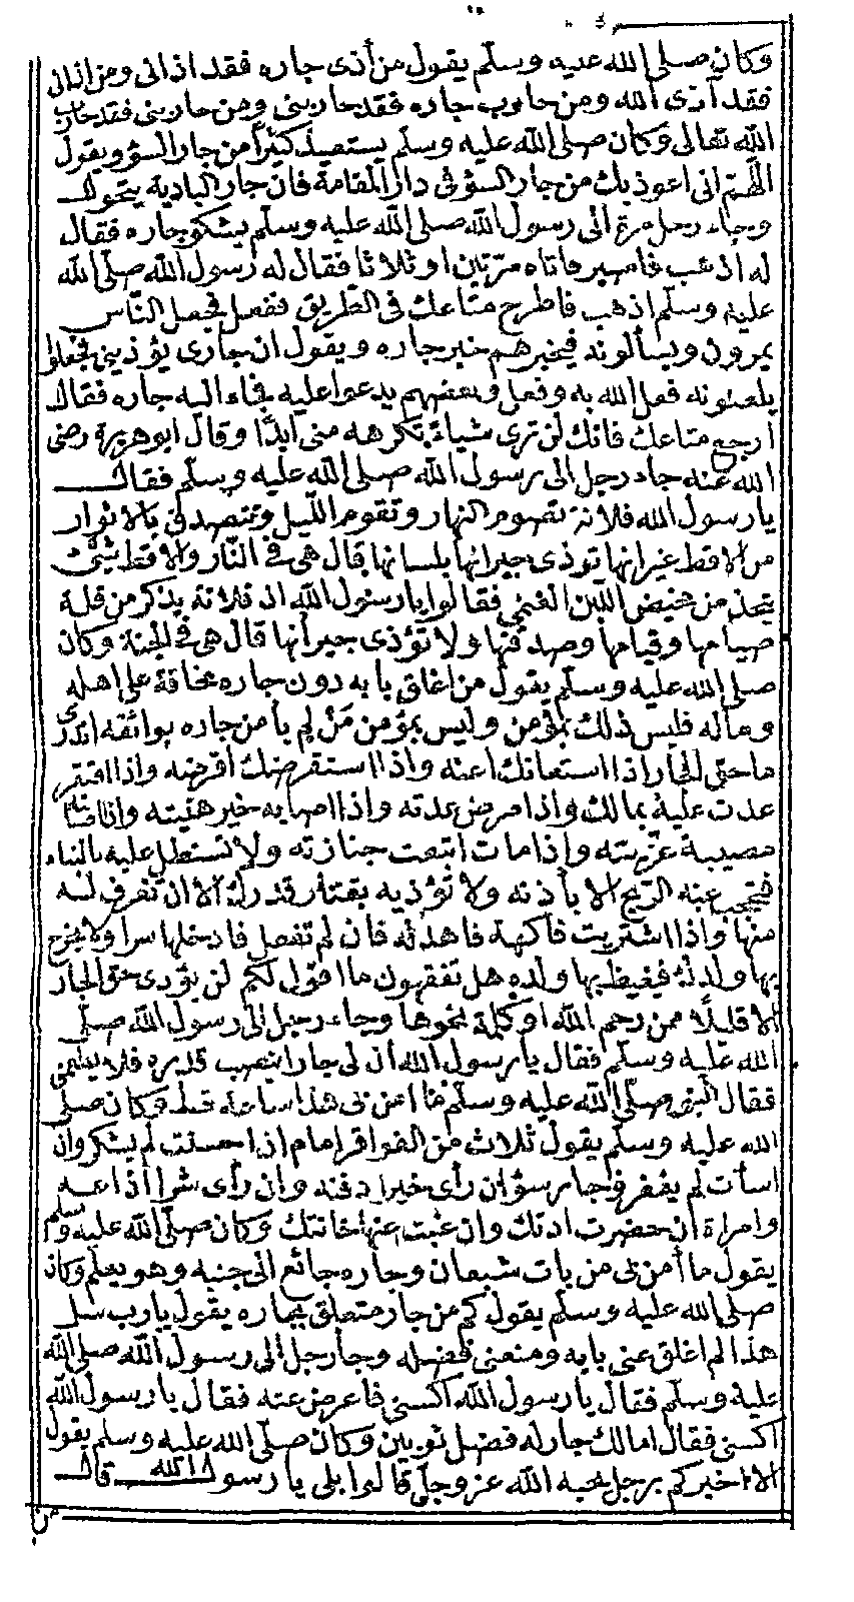 وكان صلى الله عليه وسلم يقول من أذى جاره فقد اذانى ومن اذانى
فقد آذى الله ومن حارب جاره فقد حاربنى ومن حاربنى فقد حارب
الله تعالى وكان صلى الله عليه وسلم يستعيذ كثيرا من جار السؤ ويقول
اللهم انى اعوذ بك من جار السؤ فى دار المقامة فان جار البادية يتحول
وجاء رجل مرة الى رسول الله صلى الله عليه وسلم يشكو جاره فقال
له اذهب فاصبر فاتاه مرتين او ثلاثا فقال له رسول الله صلى الله
عليه وسلم اذهب فاطرح متاعك فى الطريق ففعل فجعل الناس
يمرون ويسألونه فيخبرهم خبر جاره ويقول ان جارى يؤذينى فجعلوا
يلعنونه فعل الله به وفعل وبعضهم يدعوا عليه فجاء اليه جاره فقال
ارجع متاعك فانك لن ترى شياء تكرهه منى ابدا وقال ابو هريرة رضى
الله عنه جاء رجل الى رسول الله صلى الله عليه وسلم فقال
يا رسول الله فلانة تصوم النهار وتقوم الليل وتتصدق بالاثوار
من الاقط غير انها توذى جيرانها بلسانها قال هى فى النار والاقط شئ
يتخذ من مخيض اللبن الغنمى فقالوا يا رسول الله ان فلانة يذكر من قلة
صيامها وقيامها وصدقتها ولا تؤذى جيرانها قال هى فى الجنة وكان
صلى الله عليه وسلم يقول من اغلق بابه دون جاره مخافة على اهله
وماله فليس ذلك بمؤمن وليس بمؤمن من لم يأمن جاره بوائقه اتدرى
ما حق الجار اذا استعانك اعنه واذا استقرضك أقرضه واذا افتقر
عدت عليه بمالك واذا مرض عدته واذا اصابه خير هنيته واذا اصابته
مصيبة عزيته واذا مات اتبعت جنازته ولا تستطل عليه بالبناء
فتحجب عنه الريح الا بأذنه ولا تؤذيه بقتار قدرك الا ان تغرف له
منها واذا اشتريت فاكهة فاهد له فان لم تفعل فادخلها سرا ولا يخرج
بها ولدك فيغيظ بها ولده هل تفقهون ما اقول لكم لن يؤدى حق الجار
الا قليلا ممن رحم الله او كلمة نحوها وجاء رجل الى رسول الله صلى
الله عليه وسلم فقال يا رسول الله ان لى جارا ينصب قدره فلا يطعمنى
فقال النبى صلى الله عليه وسلم ما امن بى هذا ساعة قط وكان صلى
الله عليه وسلم يقول ثلاث من الفواقر امام اذا احسنت لم يشكر وان
اسأت لم يغفر وجار سؤ ان رأى خيرا دفنه وان رأى شرا أذاعه
وامراة ان حضرت اذتك وان غبت عنها خانتك وكان صلى الله عليه وسلم
يقول ما أمن بى من بات شبعان وجاره جائع الى جنبه وهو يعلم وكان
صلى الله عليه وسلم يقول كم من جار متعلق بجاره يقول يا رب سل
هذا لم اغلق عنى بابه ومنعنى فضله وجأ رجل الى رسول الله صلى الله
عليه وسلم فقال يا رسول الله اكسنى فاعرض عنه فقال يا رسول الله
اكسنى فقال اما لك جار له فضل ثوبين وكان صلى الله عليه وسلم يقول
الا اخبركم برجل يحبه الله عز وجل قالوا بلى يا رسول الله قال
من